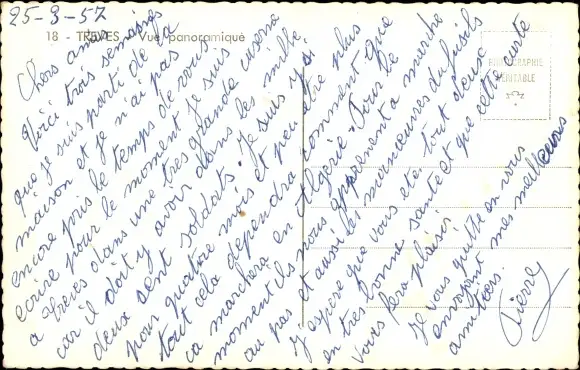 25-3-57
18 - TREVES - Vue panoramique
PHOTOGRAPHIE
VERITABLE
Chers amis
Voici trois semaines
que je suis parti de la
maison et je n'ai pas
encore pris le temps de vous
ecrire pour le moment je suis
a Trèves dans une tres grande caserne
car il doit y avoir dans les mille
deux cent soldats. Je suis ici
pour quatre mois et peu être plus
tout cela dépendra comment que
ca marchera en Algérie. Pour le
moment ils nous apprennent a marché
au pas et aussi les manoeuvres du fusils
J espère que vous etes tout deux
en tres bonne santé et que cette carte
vous fera plaisir
Je vous quitte en vous
envoyant mes meilleures
amitiers.
Pierre